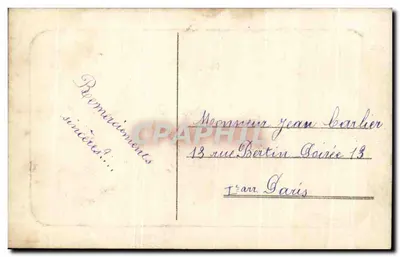 Remerciements
sincères...
Monsieur Jean Carlier
13 rue Bertin Poirée 13
1er arr Paris
CPARAMA.COM